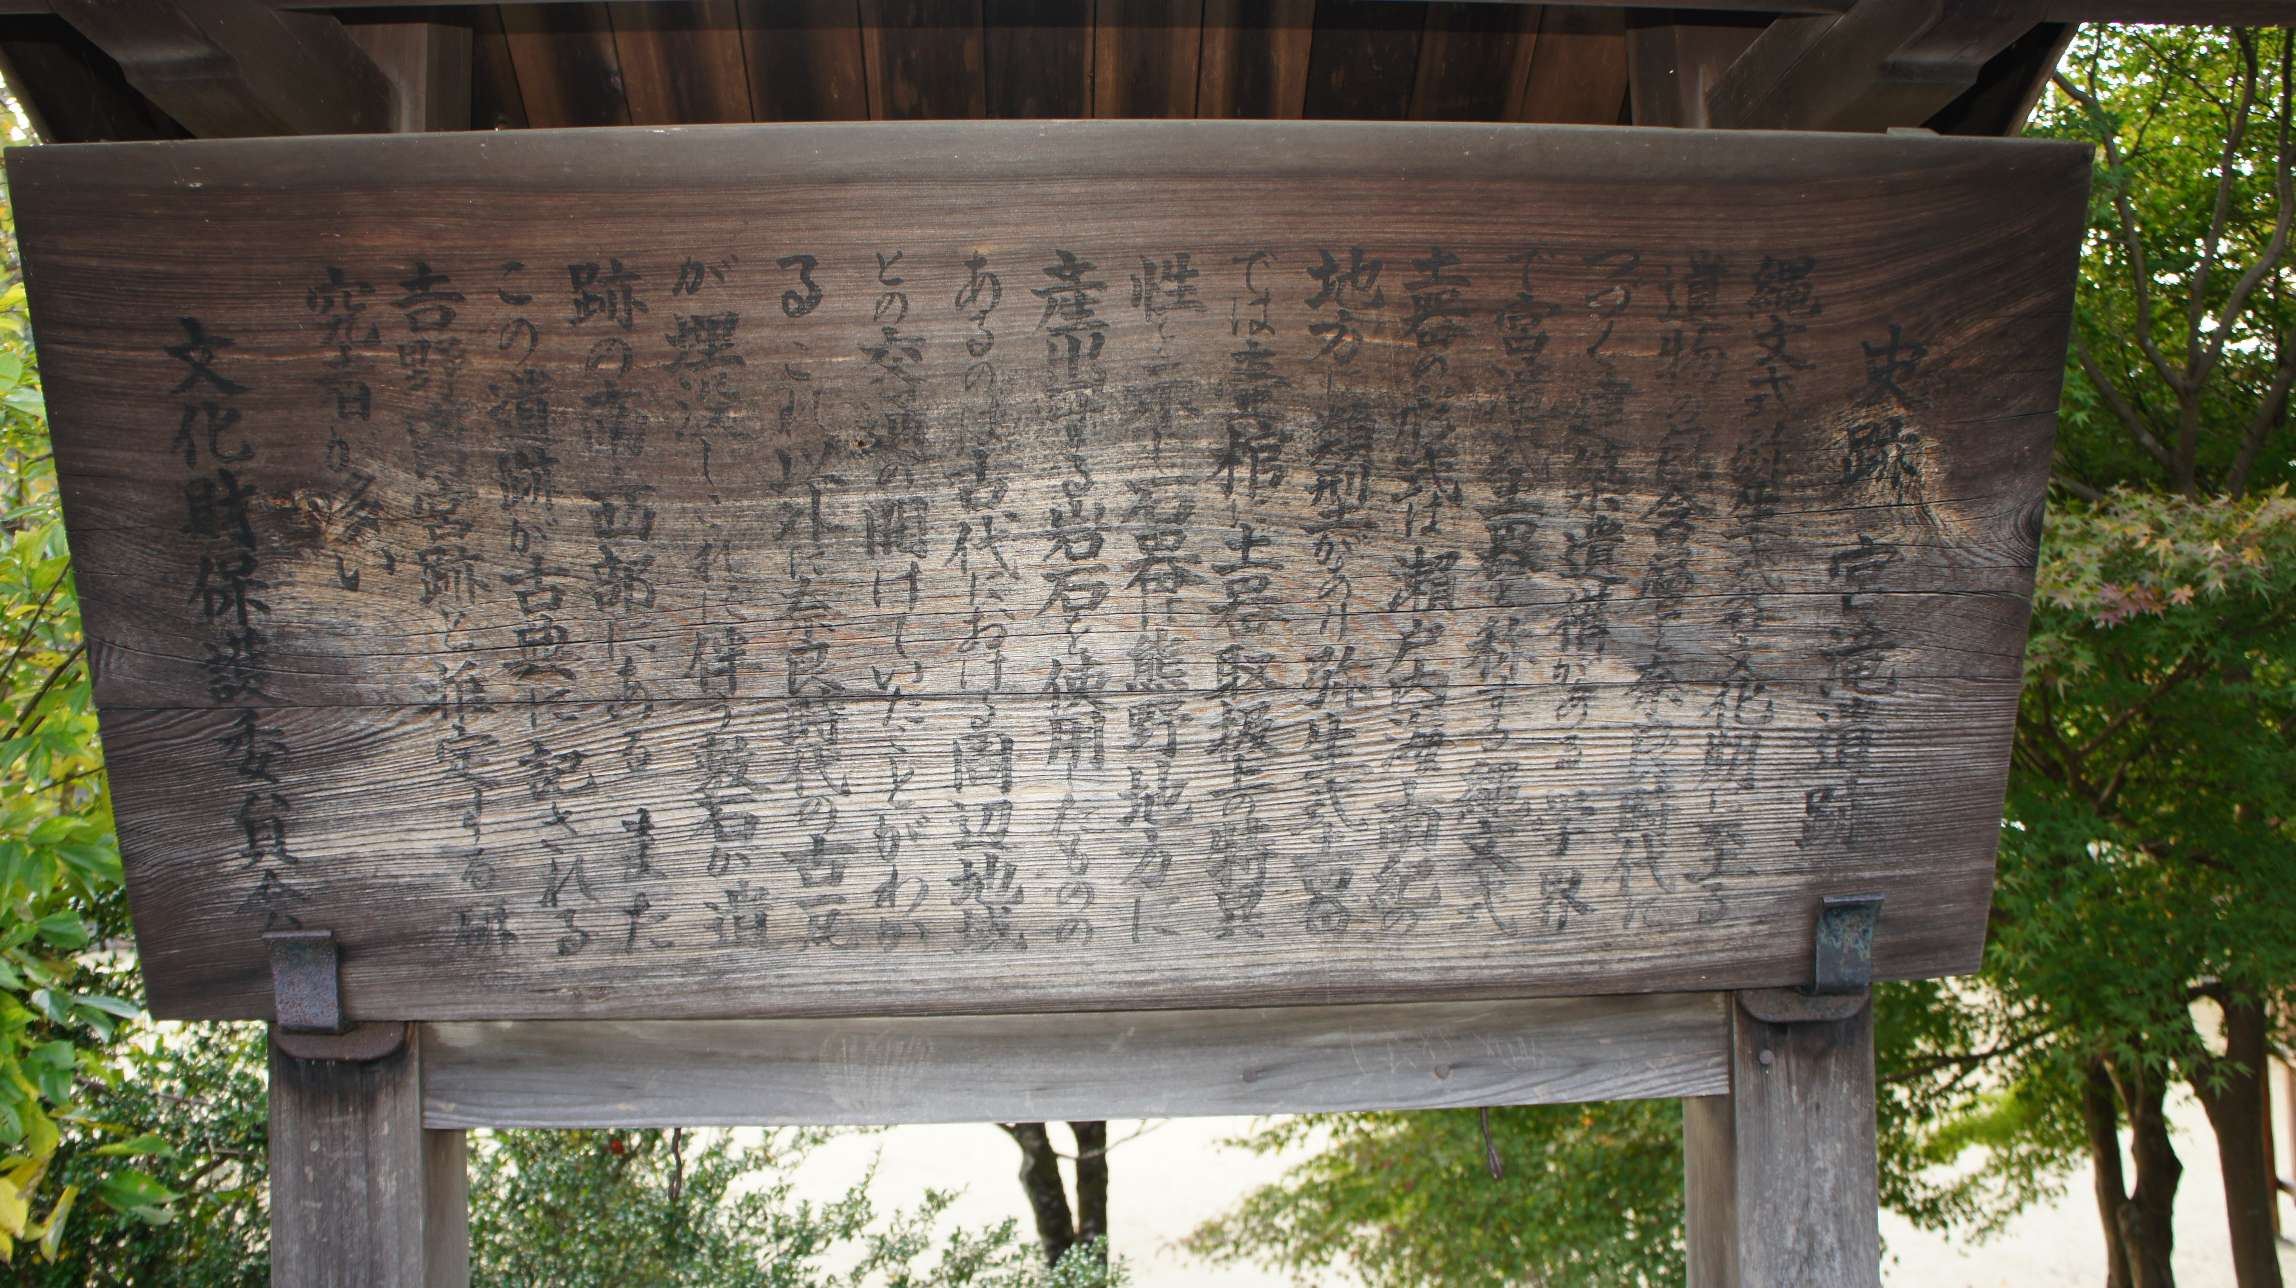 史跡 宮滝遺跡
縄文式弥生式文化期に至る
遺物の包含層と奈良時代に
つづく建築遺構がある 学界
で宮滝式土器と称する縄文式
土器の形式は瀬戸内海 南紀の
地方に類型があり弥生式土器
では壺棺に土器取扱上の特異
性を示し石器は熊野地方に
産出する岩石を使用したものの
あるのは古代における周辺地域
との交通の開けていたことがわか
る これ以外に奈良時代の古瓦
が埋没し これに伴う敷石が遺
跡の南 西部にある また
この遺跡が古典に記される
吉野離宮跡と推定する研
究者が多い
文化財保護委員会